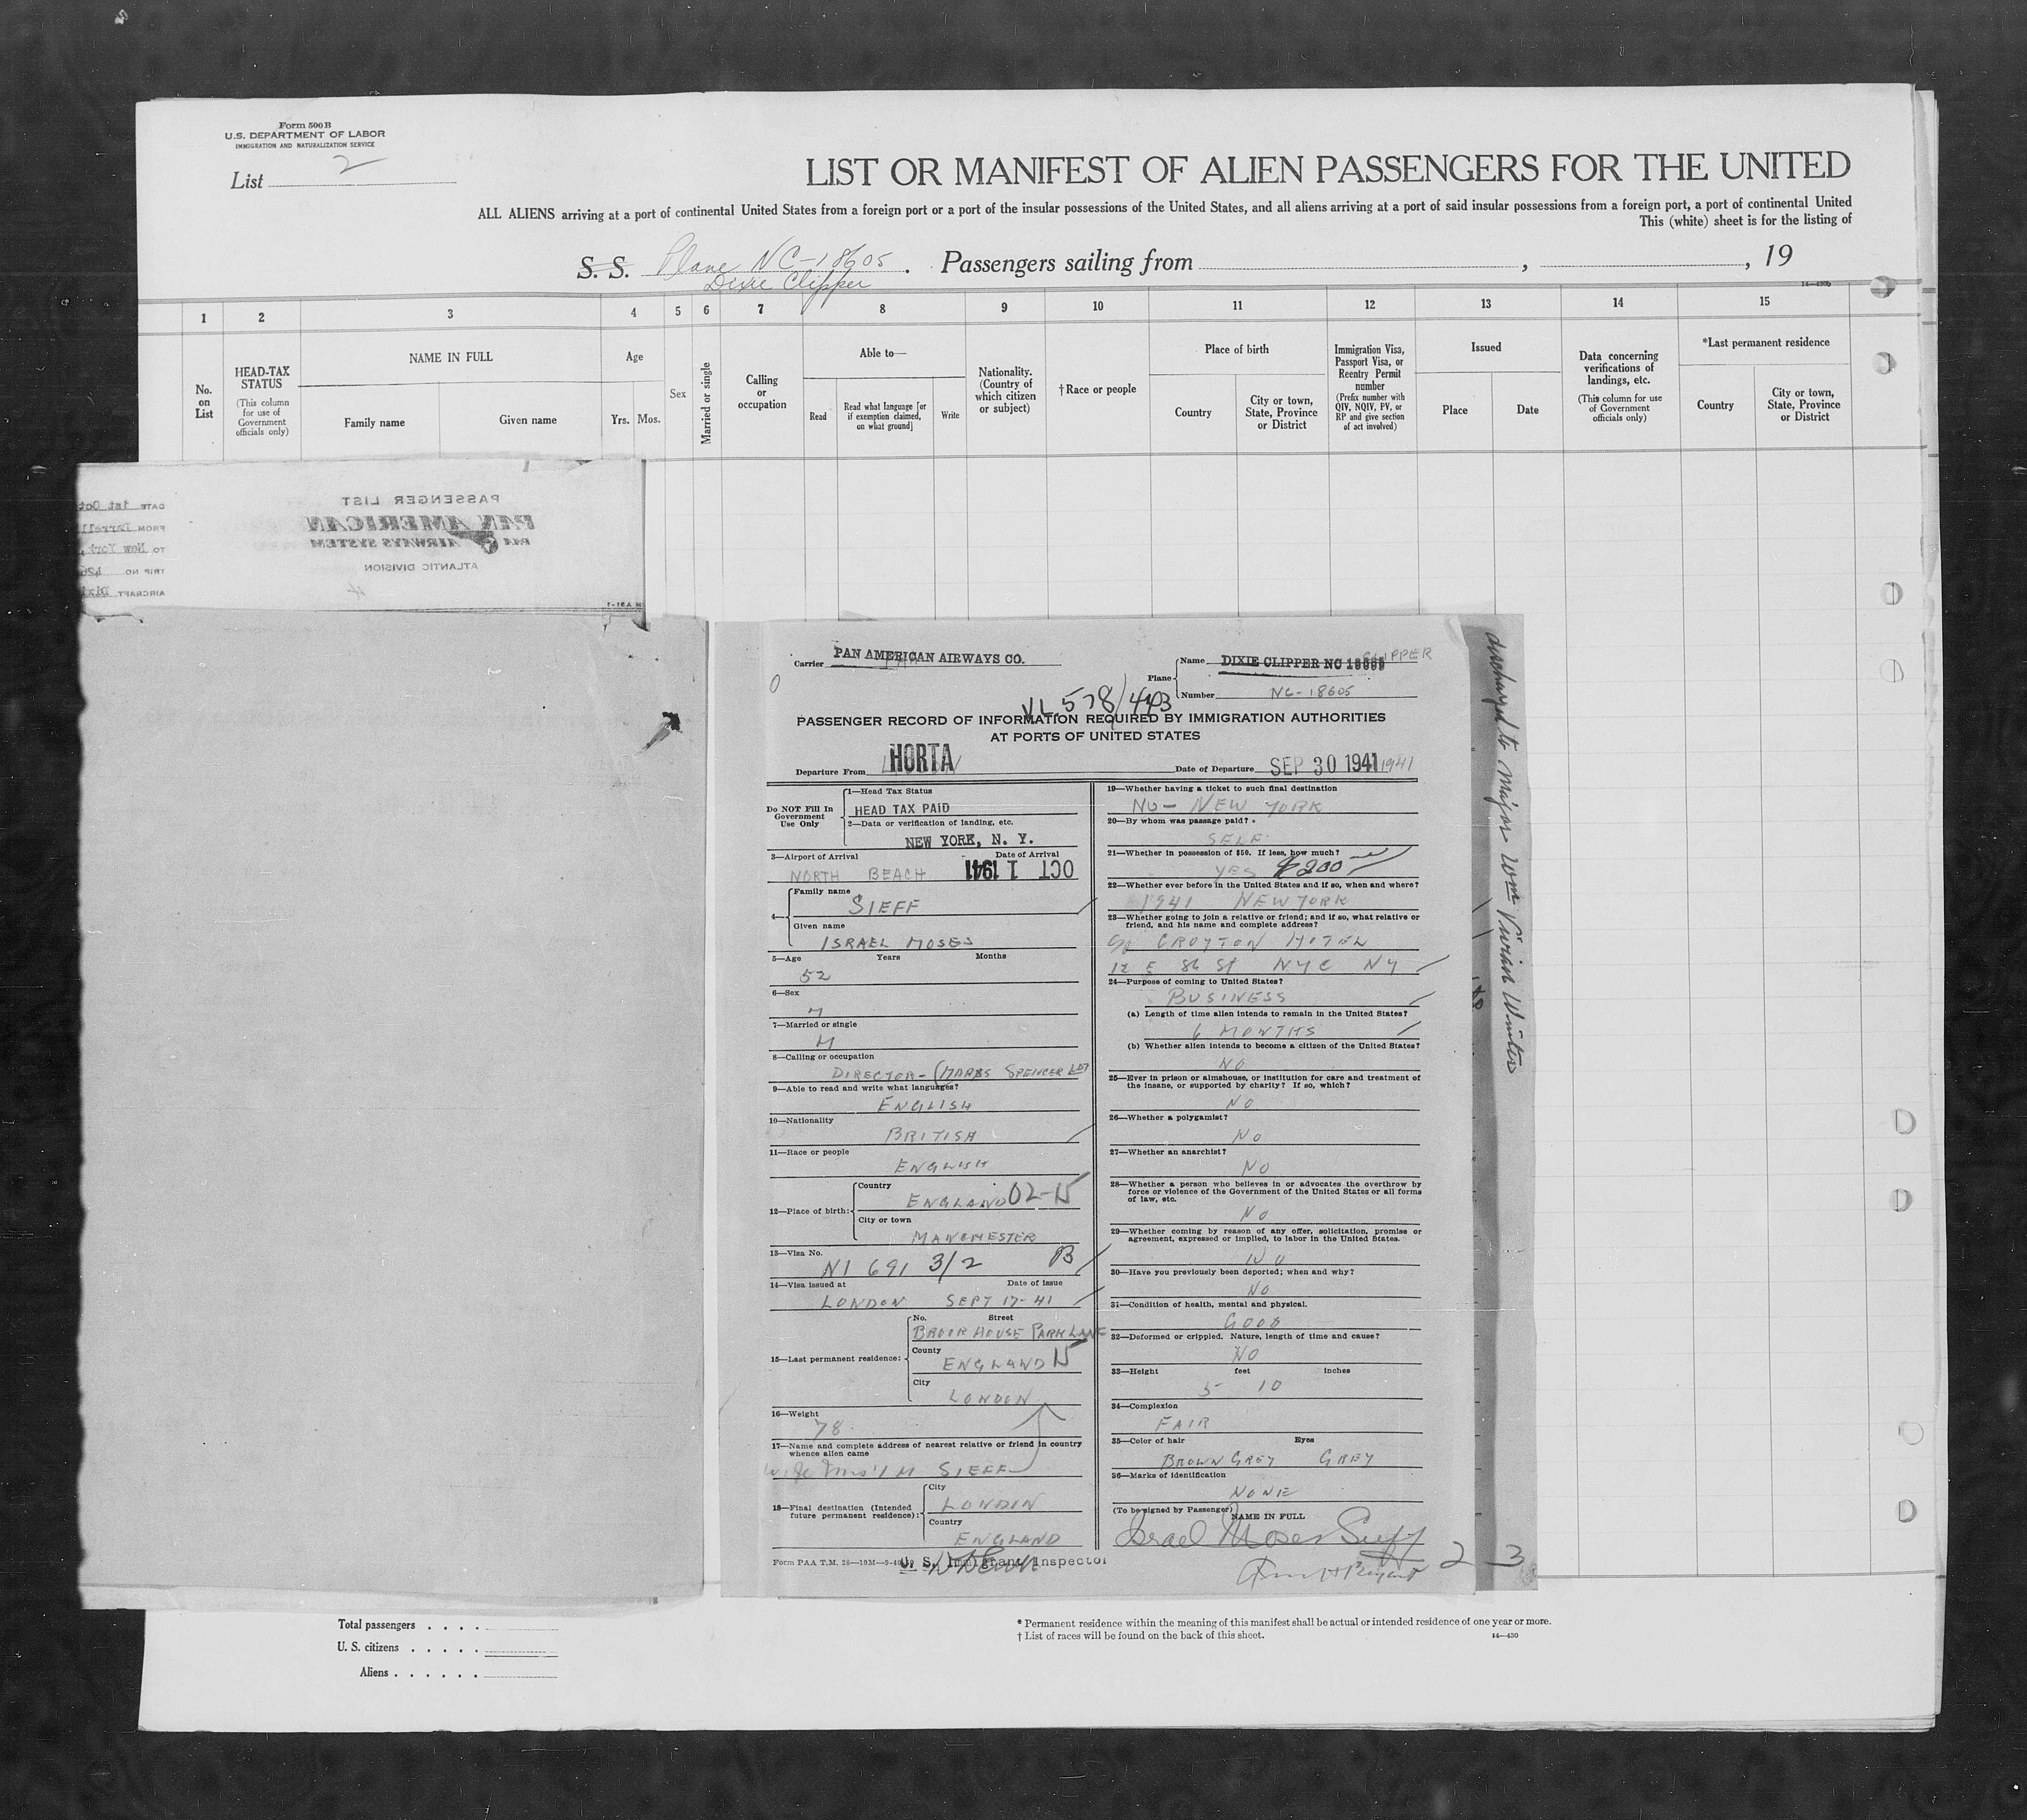 Form 500 B
U.S. DEPARTMENT OF LABOR
IMMIGRATION AND NATURALIZATION SERVICE
List 2
LIST OR MANIFEST OF ALIEN PASSENGERS FOR THE UNITED
ALL ALIENS arriving at a port of continental United States from a foreign port or a port of the insular possessions of the United States, and all aliens arriving at a port of said insular possessions from a foreign port, a port of continental United
This (white) sheet is for the listing of
S. S. Plane NC-18605. Passengers sailing from , , 19
Dixie Clipper
14—430b
1 2 3 4 5 6 7 8 9 10 11 12 13 14 15
No. on List
HEAD-TAX STATUS
(This column for use of Government officials only)
NAME IN FULL
Family name
Given name
Age
Yrs. Mos.
Sex
Married or single
Calling or occupation
Able to—
Read
Read what language [or if exemption claimed, on what ground]
Write
Nationality. (Country of which citizen or subject)
† Race or people
Place of birth
Country
City or town, State, Province or District
Immigration Visa, Passport Visa, or Reentry Permit number
(Prefix number with QIV, NQIV, PV, or RP and give section of act involved)
Issued
Place
Date
Data concerning verifications of landings, etc.
(This column for use of Government officials only)
*Last permanent residence
Country
City or town, State, Province or District
PASSENGER LIST
PAN AMERICAN
PAA AIRWAYS SYSTEM
ATLANTIC DIVISION
DATE 1st Oct
FROM
TO New York,
TRIP NO 426
AIRCRAFT Dixi
Carrier PAN AMERICAN AIRWAYS CO.
Plane
Name DIXIE CLIPPER NC 18605 CLIPPER
Number NC-18605
VL 578/443
PASSENGER RECORD OF INFORMATION REQUIRED BY IMMIGRATION AUTHORITIES
AT PORTS OF UNITED STATES
Departure From HORTA
Date of Departure SEP 30 1941 1941
Do NOT Fill In
Government
Use Only
1—Head Tax Status
HEAD TAX PAID
2—Data or verification of landing, etc.
NEW YORK, N. Y.
3—Airport of Arrival Date of Arrival
NORTH BEACH OCT 1 1941
4— Family name
SIEFF
Given name
ISRAEL MOSES
5—Age Years Months
52
6—Sex
M
7—Married or single
M
8—Calling or occupation
DIRECTOR - (MARKS SPENCER LTD
9—Able to read and write what languages?
ENGLISH
10—Nationality
BRITISH
11—Race or people
ENGLISH
12—Place of birth:
Country
ENGLAND 02-15
City or town
MANCHESTER
13—Visa No.
NI 691 3/2 B
14—Visa issued at Date of issue
LONDON SEPT 17-41
15—Last permanent residence:
No. Street
BROOK HOUSE PARK LANE
County
ENGLAND 15
City
LONDON
16—Weight
78
17—Name and complete address of nearest relative or friend in country
whence alien came
wife Mrs I M SIEFF
18—Final destination (Intended
future permanent residence):
City
LONDON
Country
ENGLAND
Form PAA T.M. 28—10M—9-40
U. S. Immigrant Inspector
19—Whether having a ticket to such final destination
NO - NEW YORK
20—By whom was passage paid?
SELF
21—Whether in possession of $50. If less, how much?
YES $200
22—Whether ever before in the United States and if so, when and where?
1941 NEW YORK
23—Whether going to join a relative or friend; and if so, what relative or
friend, and his name and complete address?
c/o CROYTON HOTEL
12 E 86 St NYC NY
24—Purpose of coming to United States?
BUSINESS
(a) Length of time alien intends to remain in the United States?
6 MONTHS
(b) Whether alien intends to become a citizen of the United States?
NO
25—Ever in prison or almshouse, or institution for care and treatment of
the insane, or supported by charity? If so, which?
NO
26—Whether a polygamist?
NO
27—Whether an anarchist?
NO
28—Whether a person who believes in or advocates the overthrow by
force or violence of the Government of the United States or all forms
of law, etc.
NO
29—Whether coming by reason of any offer, solicitation, promise or
agreement, expressed or implied, to labor in the United States.
NO
30—Have you previously been deported; when and why?
NO
31—Condition of health, mental and physical.
GOOD
32—Deformed or crippled. Nature, length of time and cause?
NO
33—Height feet inches
5 10
34—Complexion
FAIR
35—Color of hair Eyes
BROWN GREY GREY
36—Marks of identification
NONE
(To be signed by Passenger)
NAME IN FULL
Israel Moses Sieff
2 3
discharged to Major Wm Vivian
Total passengers
U. S. citizens
Aliens
* Permanent residence within the meaning of this manifest shall be actual or intended residence of one year or more.
† List of races will be found on the back of this sheet.
14—430